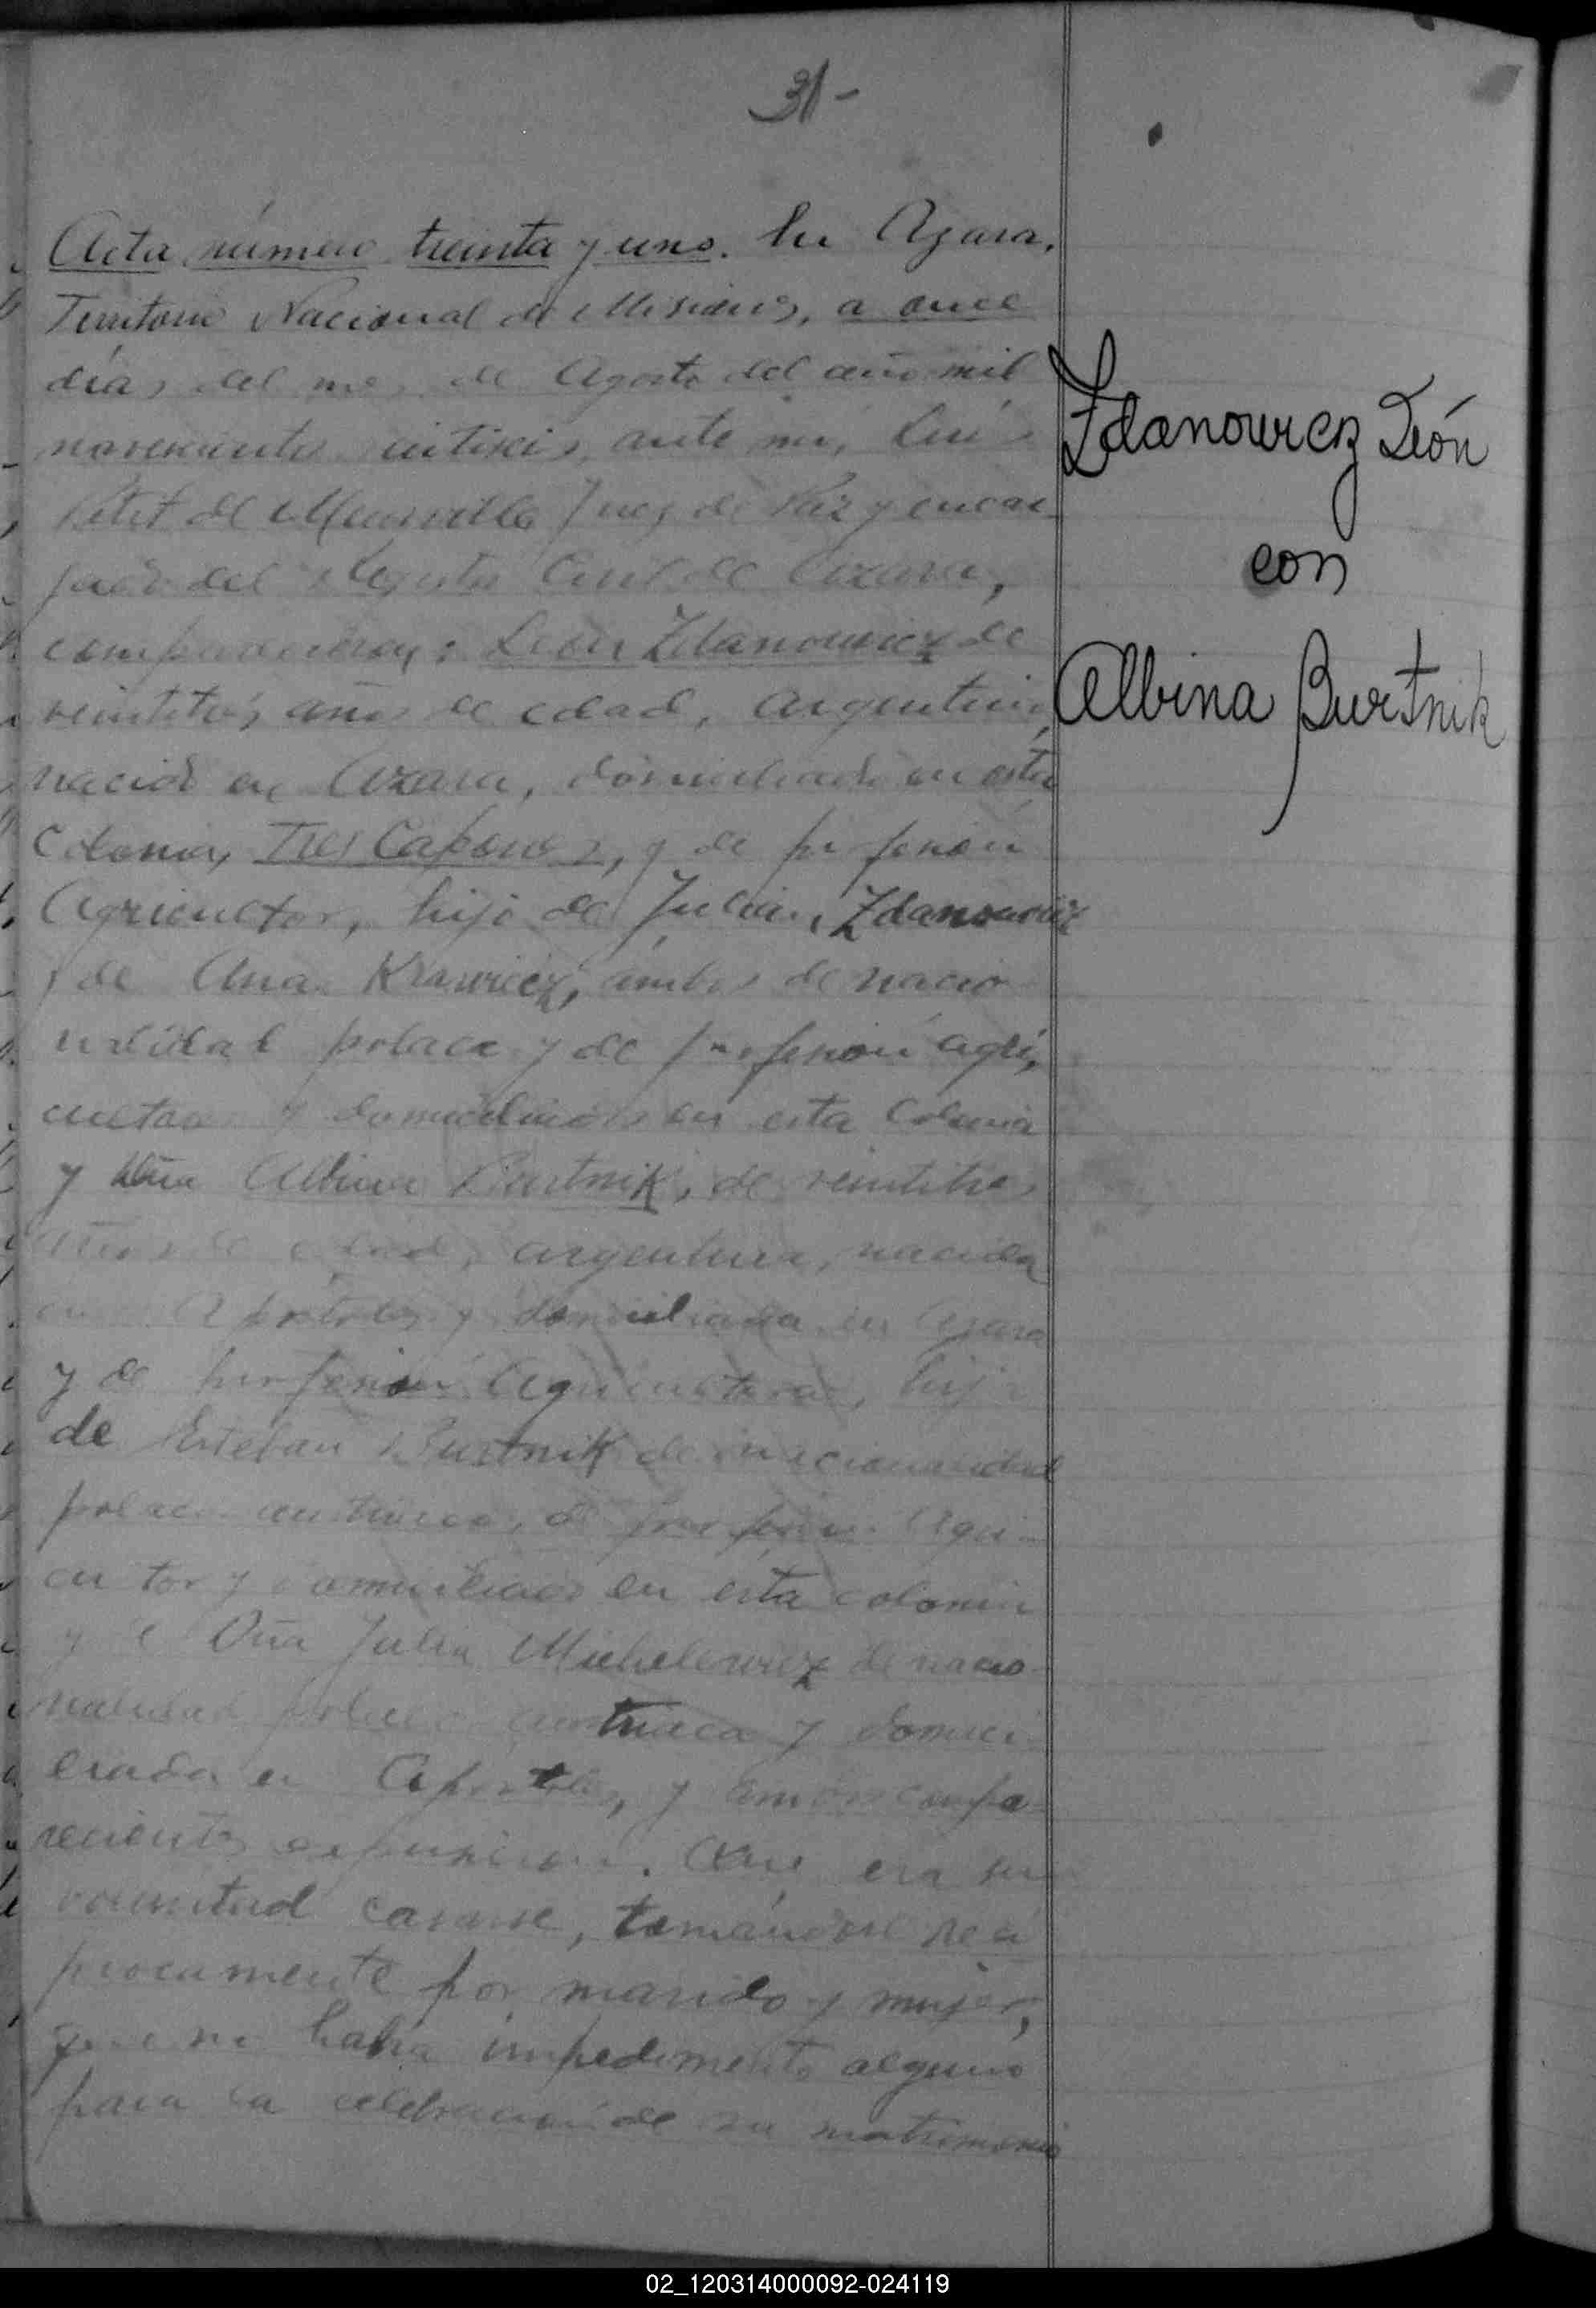 31-
Acta número treinta y uno. En Azara,
Territorio Nacional de Misiones, a once
días del mes de Agosto del año mil
novecientos ante mí, Luis
Petit de Juez de Paz y encar
gado del Registro Civil de Azara,
comparecieron: León Zdanowicz de
veintitrés años de edad, argentino,
nacido en Azara, domiciliado en esta
Colonia, Tres Capones, y de profesión
Agricultor, hijo de Julián Zdanowicz
y de Ana Krawicz, ambos de nacio
nalidad polaca y de profesión agri,
cultores y domiciliados en esta Colonia
y Dña Albina Burtnik, de veintitres
años de edad, argentina, nacida
en Apóstoles y domiciliada en Azara
y de profesión Agricultora, hija
de Esteban Burtnik de nacionalidad
polaca austriaca, de profesión Agri-
cultor y domiciliado en esta colonia
y de Dña Julia Michelewicz de nacio
nalidad polaca austriaca y domici
liada en Apóstoles, y ambos compa
recientes expusieron. Que era su
voluntad casarse, tomándose recí
procamente por marido y mujer,
que no había impedimento alguno
para la celebración de su matrimonio
Zdanowicz León
con
Albina Burtnik
02_120314000092-024119